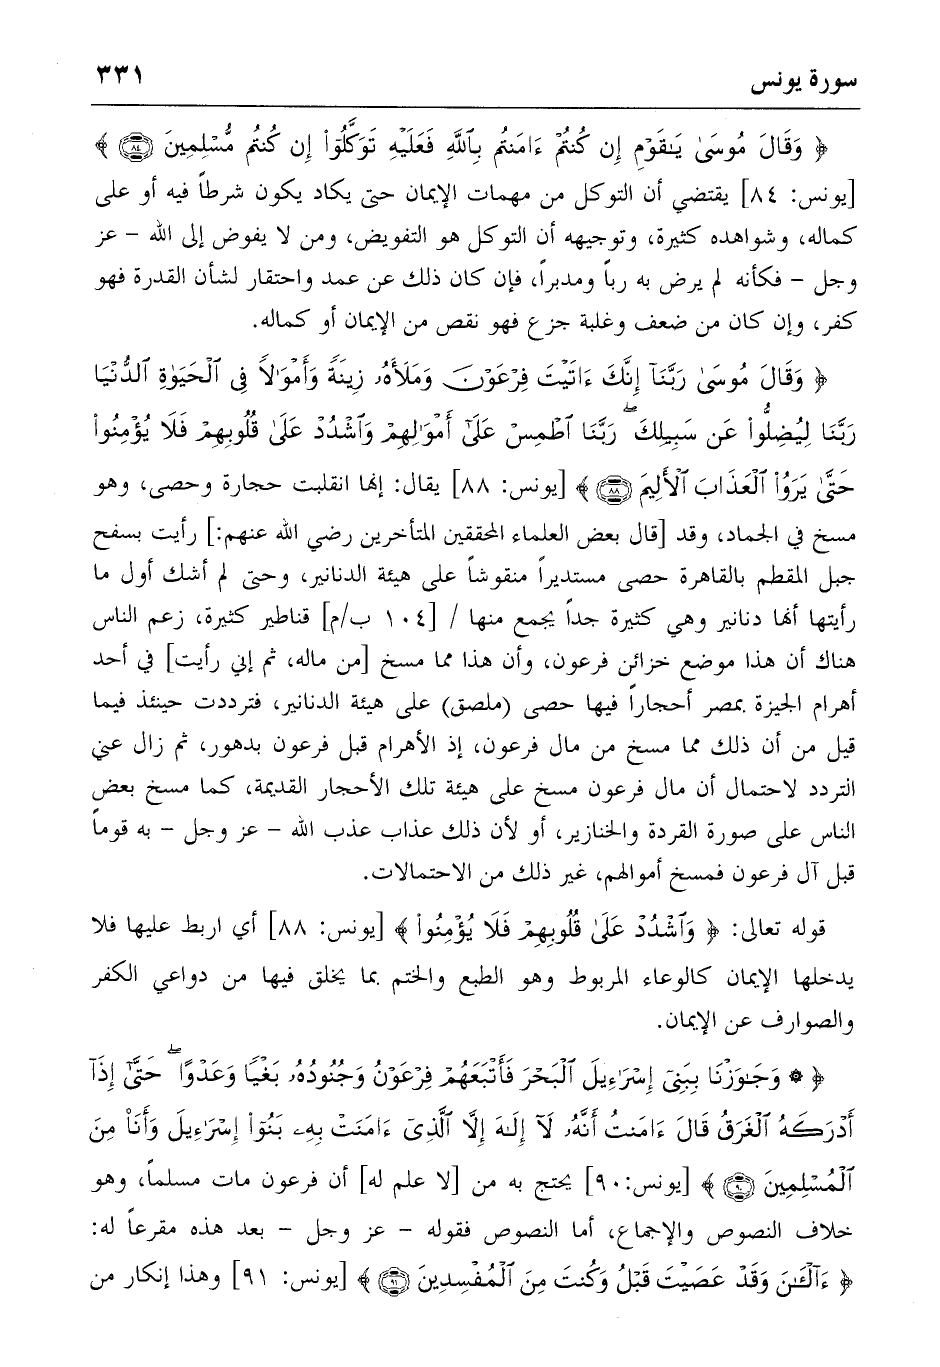 سورة يونس ٣٣١
﴿ وَقَالَ مُوسَىٰ يَـٰقَوْمِ إِن كُنتُمْ ءَامَنتُم بِٱللَّهِ فَعَلَيْهِ تَوَكَّلُوٓا۟ إِن كُنتُم مُّسْلِمِينَ ٨٤ ﴾
[يونس: ٨٤] يقتضي أن التوكل من مهمات الإيمان حتى يكاد يكون شرطاً فيه أو على
كماله، وشواهده كثيرة، وتوجيهه أن التوكل هو التفويض، ومن لا يفوض إلى الله – عز
وجل – فكأنه لم يرض به رباً ومدبراً، فإن كان ذلك عن عمد واحتقار لشأن القدرة فهو
كفر، وإن كان من ضعف وغلبة جزع فهو نقص من الإيمان أو كماله.
﴿ وَقَالَ مُوسَىٰ رَبَّنَآ إِنَّكَ ءَاتَيْتَ فِرْعَوْنَ وَمَلَأَهُۥ زِينَةً وَأَمْوَٰلًا فِى ٱلْحَيَوٰةِ ٱلدُّنْيَا
رَبَّنَا لِيُضِلُّوا۟ عَن سَبِيلِكَ ۖ رَبَّنَا ٱطْمِسْ عَلَىٰٓ أَمْوَٰلِهِمْ وَٱشْدُدْ عَلَىٰ قُلُوبِهِمْ فَلَا يُؤْمِنُوا۟
حَتَّىٰ يَرَوُا۟ ٱلْعَذَابَ ٱلْأَلِيمَ ٨٨ ﴾ [يونس: ٨٨] يقال: إنها انقلبت حجارة وحصى، وهو
مسخ في الجماد، وقد [قال بعض العلماء المحققين المتأخرين رضي الله عنهم:] رأيت بسفح
جبل المقطم بالقاهرة حصى مستديراً منقوشاً على هيئة الدنانير، وحتى لم أشك أول ما
رأيتها أنها دنانير وهي كثيرة جداً يجمع منها / [١٠٤ ب/م] قناطير كثيرة، زعم الناس
هناك أن هذا موضع خزائن فرعون، وأن هذا مما مسخ [من ماله، ثم إني رأيت] في أحد
أهرام الجيزة بمصر أحجاراً فيها حصى (ملصق) على هيئة الدنانير، فترددت حينئذ فيما
قيل من أن ذلك مما مسخ من مال فرعون، إذ الأهرام قبل فرعون بدهور، ثم زال عني
التردد لاحتمال أن مال فرعون مسخ على هيئة تلك الأحجار القديمة، كما مسخ بعض
الناس على صورة القردة والخنازير، أو لأن ذلك عذاب عذب الله – عز وجل – به قوماً
قبل آل فرعون فمسخ أموالهم، غير ذلك من الاحتمالات.
قوله تعالى: ﴿ وَٱشْدُدْ عَلَىٰ قُلُوبِهِمْ فَلَا يُؤْمِنُوا۟ ﴾ [يونس: ٨٨] أي اربط عليها فلا
يدخلها الإيمان كالوعاء المربوط وهو الطبع والختم بما يخلق فيها من دواعي الكفر
والصوارف عن الإيمان.
﴿ ۞ وَجَـٰوَزْنَا بِبَنِىٓ إِسْرَٰٓءِيلَ ٱلْبَحْرَ فَأَتْبَعَهُمْ فِرْعَوْنُ وَجُنُودُهُۥ بَغْيًا وَعَدْوًا ۖ حَتَّىٰٓ إِذَآ
أَدْرَكَهُ ٱلْغَرَقُ قَالَ ءَامَنتُ أَنَّهُۥ لَآ إِلَـٰهَ إِلَّا ٱلَّذِىٓ ءَامَنَتْ بِهِۦ بَنُوٓا۟ إِسْرَٰٓءِيلَ وَأَنَا۠ مِنَ
ٱلْمُسْلِمِينَ ٩٠ ﴾ [يونس: ٩٠] يحتج به من [لا علم له] أن فرعون مات مسلماً، وهو
خلاف النصوص والإجماع، أما النصوص فقوله – عز وجل – بعد هذه مقرعاً له:
﴿ ءَآلْـَٔـٰنَ وَقَدْ عَصَيْتَ قَبْلُ وَكُنتَ مِنَ ٱلْمُفْسِدِينَ ٩١ ﴾ [يونس: ٩١] وهذا إنكار من